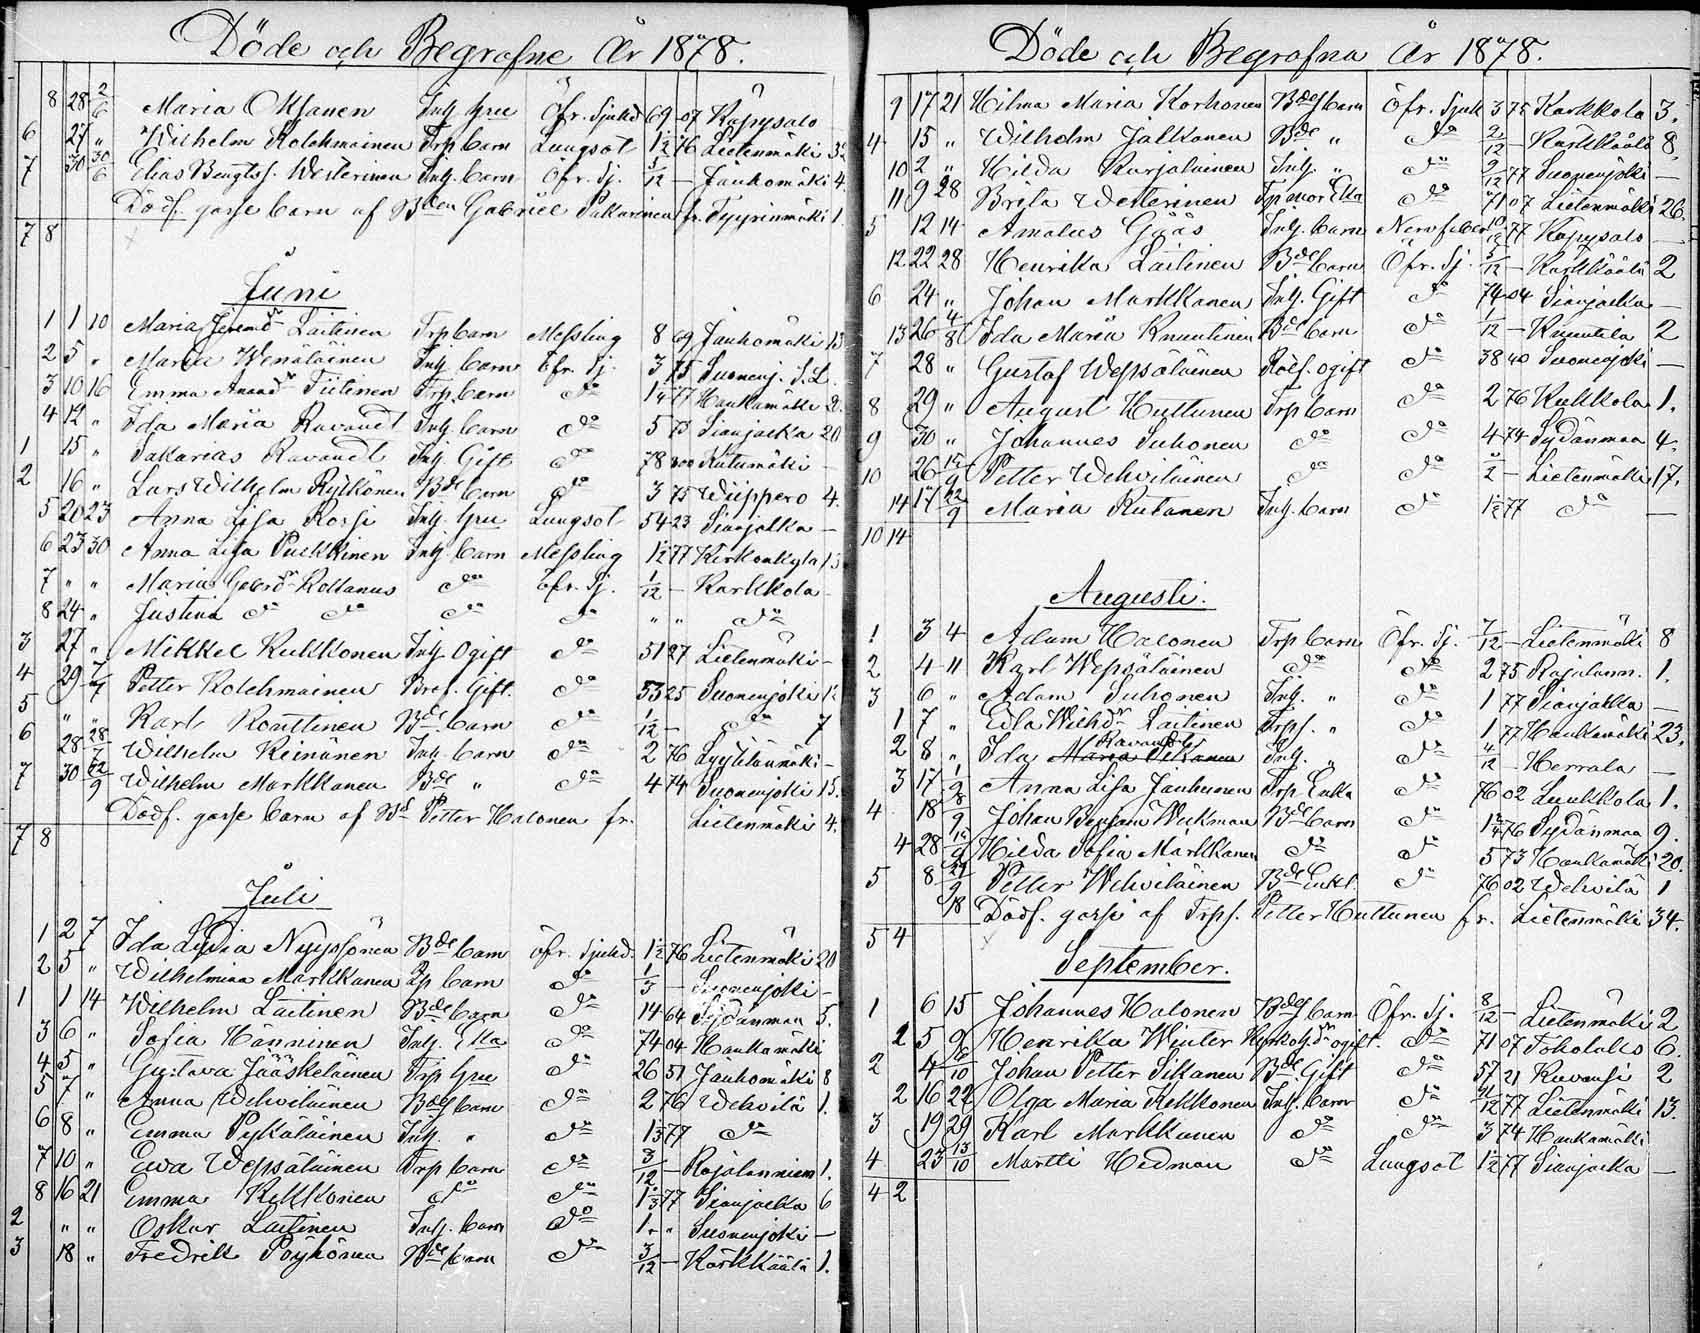 Döde och Begrafne År 1878.
8 28 2/6 Maria Oksanen Inh. hru Öfr. Sjukd 69 07 Käpysalo
6 27 " Wilhelm Kolehmainen Trp barn Lungsot 1 1/2 76 Lietenmäki 32
7 30 30/6 Elias Bengtss. Westerinen Inh. barn Öfr. Sj. 5/12 — Jauhomäki 4.
Dödf. gosse barn af Bden Gabriel Pakarinen fr. Tyyrinmäki 1.
7 8
Juni
1 1 10 Maria Jeremdr Laitinen Trp barn Messling 8 69 Jauhomäki 13
2 5 " Maria Wenäläinen Inh barn Öfr. Sj. 3 75 Suonenj.
3 10 16 Emma Tiitinen Trp. barn do 77 Haukamäki 2.
4 12 " Ida Maria Ravandt Inh. barn do 5 73 Sianjalka 20
1 15 " Sakarias Ravandt Inh. Gift do 78 800 Kutumäki —
2 16 " Lars Wilhelm Rytkönen Bde barn do 3 75 Wiippero 4.
5 20 23 Anna Lisa Rossi Inh. hru Lungsot 54 23 Sianjalka —
6 23 30 Anna Lisa Puikkinen Inh. barn Messling 1 1/2 77 Kirkonkyla 13
7 " " Maria Kottanus do Öfr. Sj. 1/12 — Karkkola
8 24 " Justina do do do do " " do
3 27 " Mikkel Kukkonen Inh Ogift do 51 27 Lietenmäki —
4 29 7/7 Petter Kolehmainen Gift. do 53 25 Suonenjoki 12
5 " " Karl Konttinen Bde barn do 1/12 — do 7
6 28 28/7 Wilhelm Reinanen Inh. barn do 2 76 —
7 30 22/9 Wilhelm Markkanen Bde " do 4 74 Suonenjoki 15.
Dödf. gosse barn af Bd Petter Halonen fr. Lietenmäki 4.
7 8
Juli
1 2 7 Ida Lydia Nyyssönen Bde barn öfr. Sjukd. 1 1/2 76 Lietenmäki 20
2 5 " Wilhelmina Markkanen barn do — Suonenjoki —
1 1 14 Wilhelm Laitinen Bde barn do 14 64 Sydänmaa 5.
3 6 " Sofia Hänninen Inh. Eka do 74 04 Haukamäki
4 5 " Gustava Jääskeläinen Trp hru do 26 51 Jauhomäki 8
5 7 " Anna Wehviläinen Bdes barn do 2 76 Wehvilä 1.
6 8 " Emma Pykäläinen Inh. " do 77 do
7 10 " Ewa Wepsäläinen Trp barn do 3/12 — Rajalanniem 1.
8 16 21 Emma Kekkonen do do 77 Sianjalka 6
2 " " Oskar Laitinen Inh. barn do 1. " Suonenjoki —
3 18 " Fredrik Pöykönen Bde barn do 3/12 — Karkkäälä 1.
Döde och Begrafna År 1878.
9 17 21 Hilma Maria Korhonen Bdes barn Öfr. Sjuk 3 75 Karkkola 3.
4 15 " Wilhelm Jalkanen Bde " do 2/12 — Karkkäälä 8.
10 2 " Hilda Karjalainen Inh. " do 9/12 77 Suonenjoki —
11 9 28 Brita Westerinen Eka do 71 07 Lietenmäki 26.
5 12 14 Amalus Gåås Inh. barn Nervfeber 10/12 77 Käpysalo —
12 22 28 Henrika Laitinen Bde barn Öfr. Sj. 5/12 — Karkkäälä 2
6 24 " Johan Markkanen Inh. Gift do 74 04 Sianjalka —
13 26 4/8 Ida Maria Knuutinen Bde barn do 1/12 — Knuutila 2
7 28 " Gustaf Wepsäläinen ogift do 38 40 Suonenjoki —
8 29 " August Huttunen Trp barn do 2 76 Kukkola 1.
9 30 " Johannes Suhonen do do 4 74 Sydänmaa 4.
10 26 Petter Wehviläinen do do — Lietenmäki 17.
14 17 22/9 Maria Rutanen Inh. barn do 1 1/2 77 do —
10 14
Augusti.
1 3 4 Adam Halonen Trp barn Öfr. Sj. 7/12 — Lietenmäki 8
2 4 11 Karl Wepsäläinen do do 2 75 Rajalann. 1.
3 6 " Adam Suhonen Inh. " do 1 77 Sianjalka —
1 7 " Edla Laitinen Trps. " do 1 77 Haukamäki 23.
2 8 " Ida Maria Sikanen Ravandt Inh. " do 4/12 — Herrala —
3 17 1/9 Anna Lisa Jauhunen Trp Enka do 76 02 Luukkola 1.
4 18 8/9 Johan Benjam Wickman Bde barn do 76 Sydänmaa 9.
4 28 15/9 Hilda Sofia Markkanen do do 5 73 Haukamäki 20.
5 8 Petter Wehviläinen Bde Enkl. do 76 02 Wehvilä 1
18 Dödf. gosse af Trps. Petter Huttunen fr. Lietenmäki 34.
5 4
September.
1 6 15 Johannes Halonen Bdes barn Öfr. Sj. 8/12 — Lietenmäki 2
1 5 9 Henrika Winter ogift. do 71 07 Toholaks 6.
2 4 Johan Petter Sikanen Bde. Gift do 57 21 Kuvansi 2
2 16 22 Olga Maria Kekkonen Inh. barn do 77 Lietenmäki 13.
3 19 29 Karl Markkanen do do 3 74 Haukamäki
4 23 13/10 Martti Hedman do Lungsot 1 1/2 77 Sianjalka —
4 2